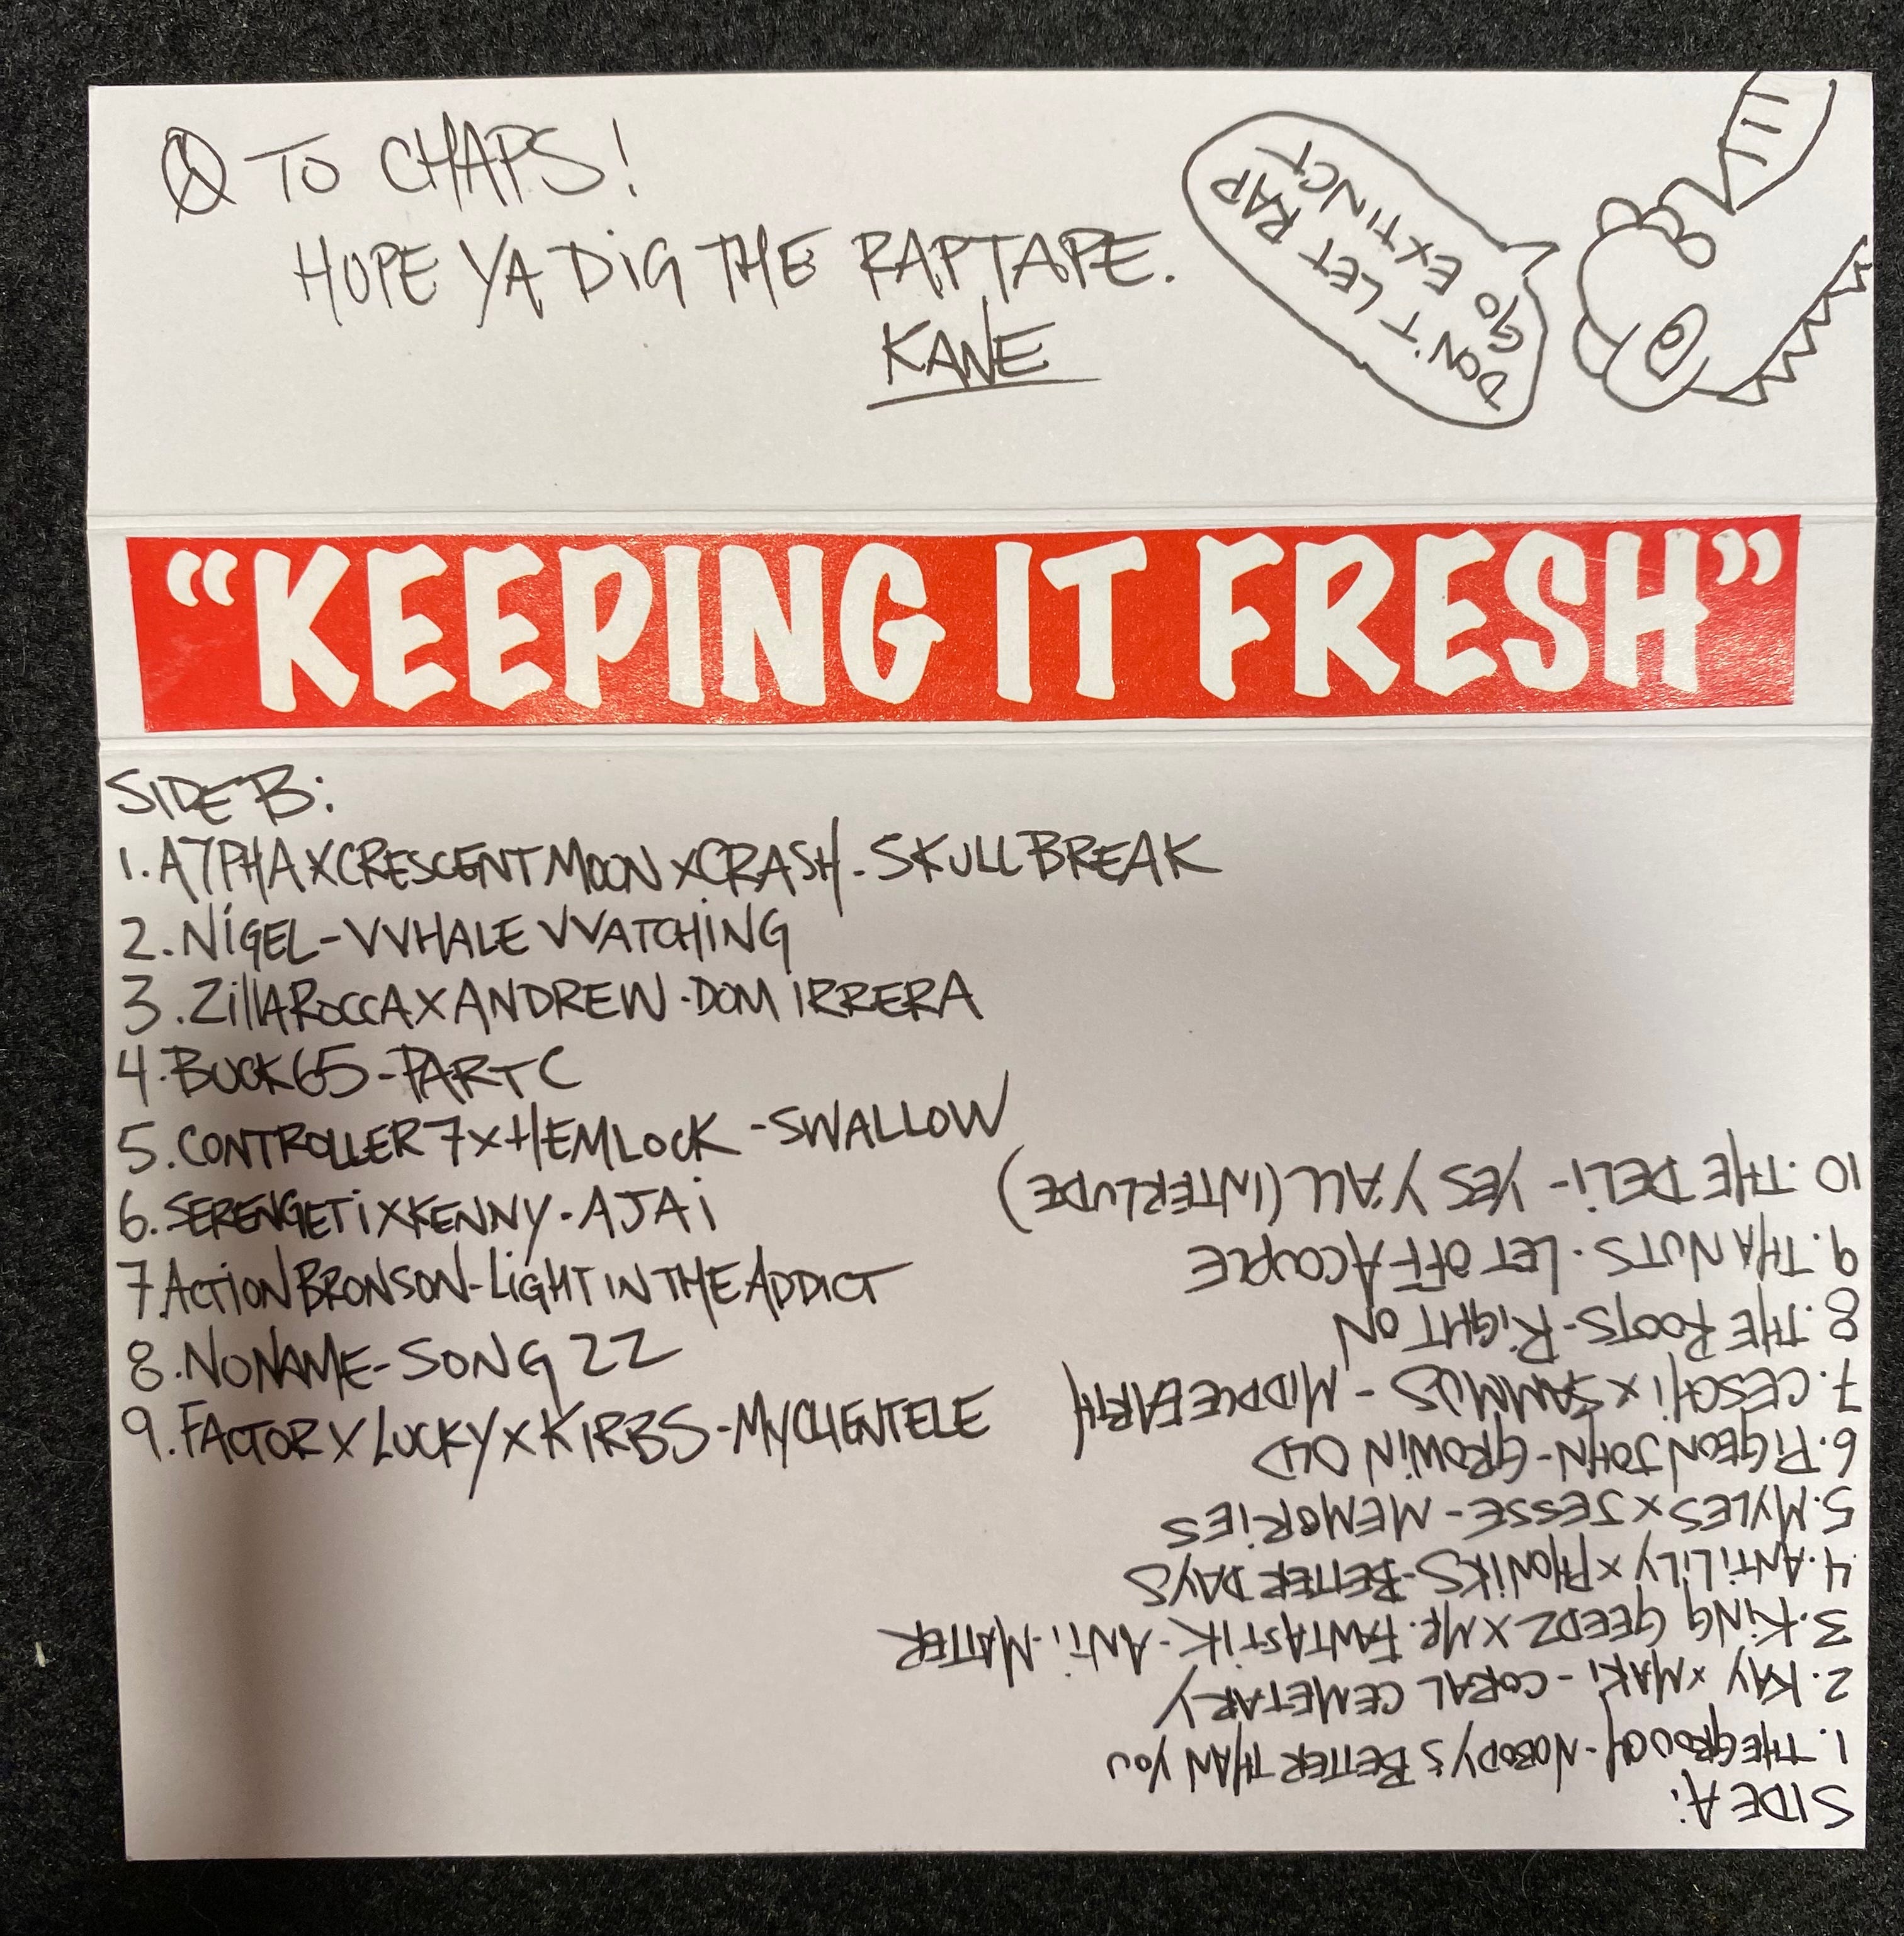 TO CHAPS!
HOPE YA DIG THE RAPTAPE.
KANE
DON'T LET RAP
GO EXTINCT
“KEEPING IT FRESH”
SIDE B:
1. A7PHA X CRESCENT MOON X CRASH - SKULL BREAK
2. NIGEL - WHALE WATCHING
3. ZILLA ROCCA X ANDREW - DOM IRRERA
4. BUCK 65 - PART C
5. CONTROLLER 7 X HEMLOCK - SWALLOW
6. SERENGETI X KENNY - AJAI
7. ACTION BRONSON - LIGHT IN THE ADDICT
8. NONAME - SONG 22
9. FACTOR X LUCKY X KIRBS - MY CLIENTELE
SIDE A:
1. THE GROUCH - NOBODY'S BETTER THAN YOU
2. KAY X MAKI - CORAL CEMETARY
3. KING GEEDZ X MR. FANTASTIK - ANTI-MATTER
4. ANTI LILY X PHONIKS - BETTER DAYS
5. MYLES X JESSE - MEMORIES
6. PIGEON JOHN - GROWIN OLD
7. CESCHI X SAMMUS - MIDDLE EARTH
8. THE ROOTS - RIGHT ON
9. THA NUTS - LET OFF A COUPLE
10. THE DELI - YES Y'ALL (INTERLUDE)